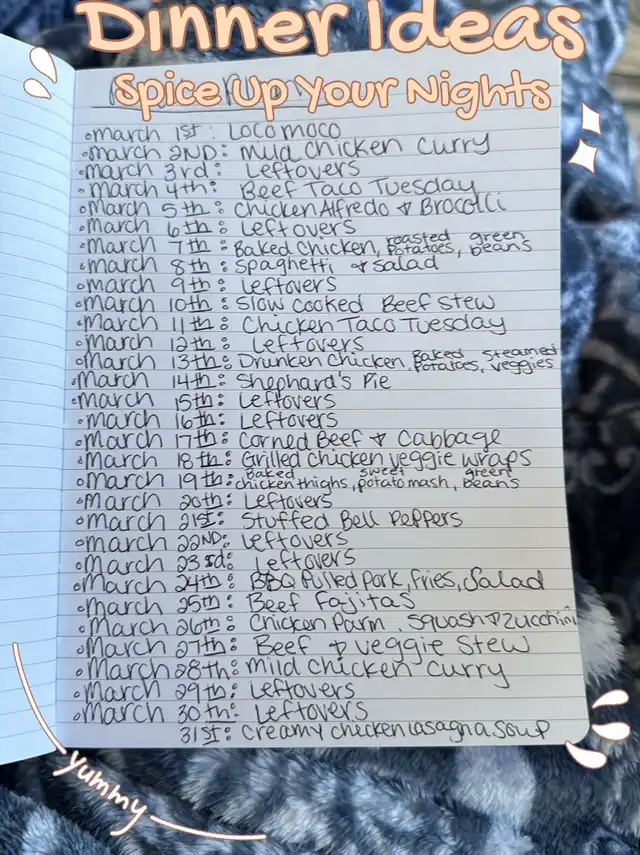 Dinner Ideas
Spice Up Your Nights
March 1st: Loco moco
March 2ND: Mild Chicken Curry
March 3rd: Leftovers
March 4th: Beef Taco Tuesday
March 5th: Chicken Alfredo & Brocolli
March 6th: Leftovers
March 7th: Baked Chicken, roasted potatoes, green beans
March 8th: Spaghetti & Salad
March 9th: Leftovers
March 10th: Slow Cooked Beef Stew
March 11th: Chicken Taco Tuesday
March 12th: Leftovers
March 13th: Drunken Chicken, Baked potatoes, steamed veggies
March 14th: Shephard's Pie
March 15th: Leftovers
March 16th: Leftovers
March 17th: Corned Beef & Cabbage
March 18th: Grilled chicken veggie wraps
March 19th: Baked chicken thighs, sweet potato mash, green beans
March 20th: Leftovers
March 21st: Stuffed Bell Peppers
March 22ND: Leftovers
March 23rd: Leftovers
March 24th: BBQ Pulled Pork, Fries, Salad
March 25th: Beef Fajitas
March 26th: Chicken Parm, Squash & Zucchini
March 27th: Beef & veggie Stew
March 28th: Mild Chicken Curry
March 29th: Leftovers
March 30th: Leftovers
31st: Creamy chicken lasagna soup
yummy